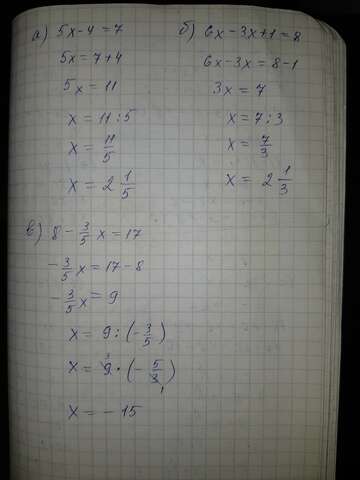 а) 5x - 4 = 7
5x = 7 + 4
5x = 11
x = 11 : 5
x = 11/5
x = 2 1/5
б) 6x - 3x + 1 = 8
6x - 3x = 8 - 1
3x = 7
x = 7 : 3
x = 7/3
x = 2 1/3
в) 8 - 3/5 x = 17
- 3/5 x = 17 - 8
- 3/5 x = 9
x = 9 : (- 3/5)
x = 9 · (- 5/3)
x = - 15